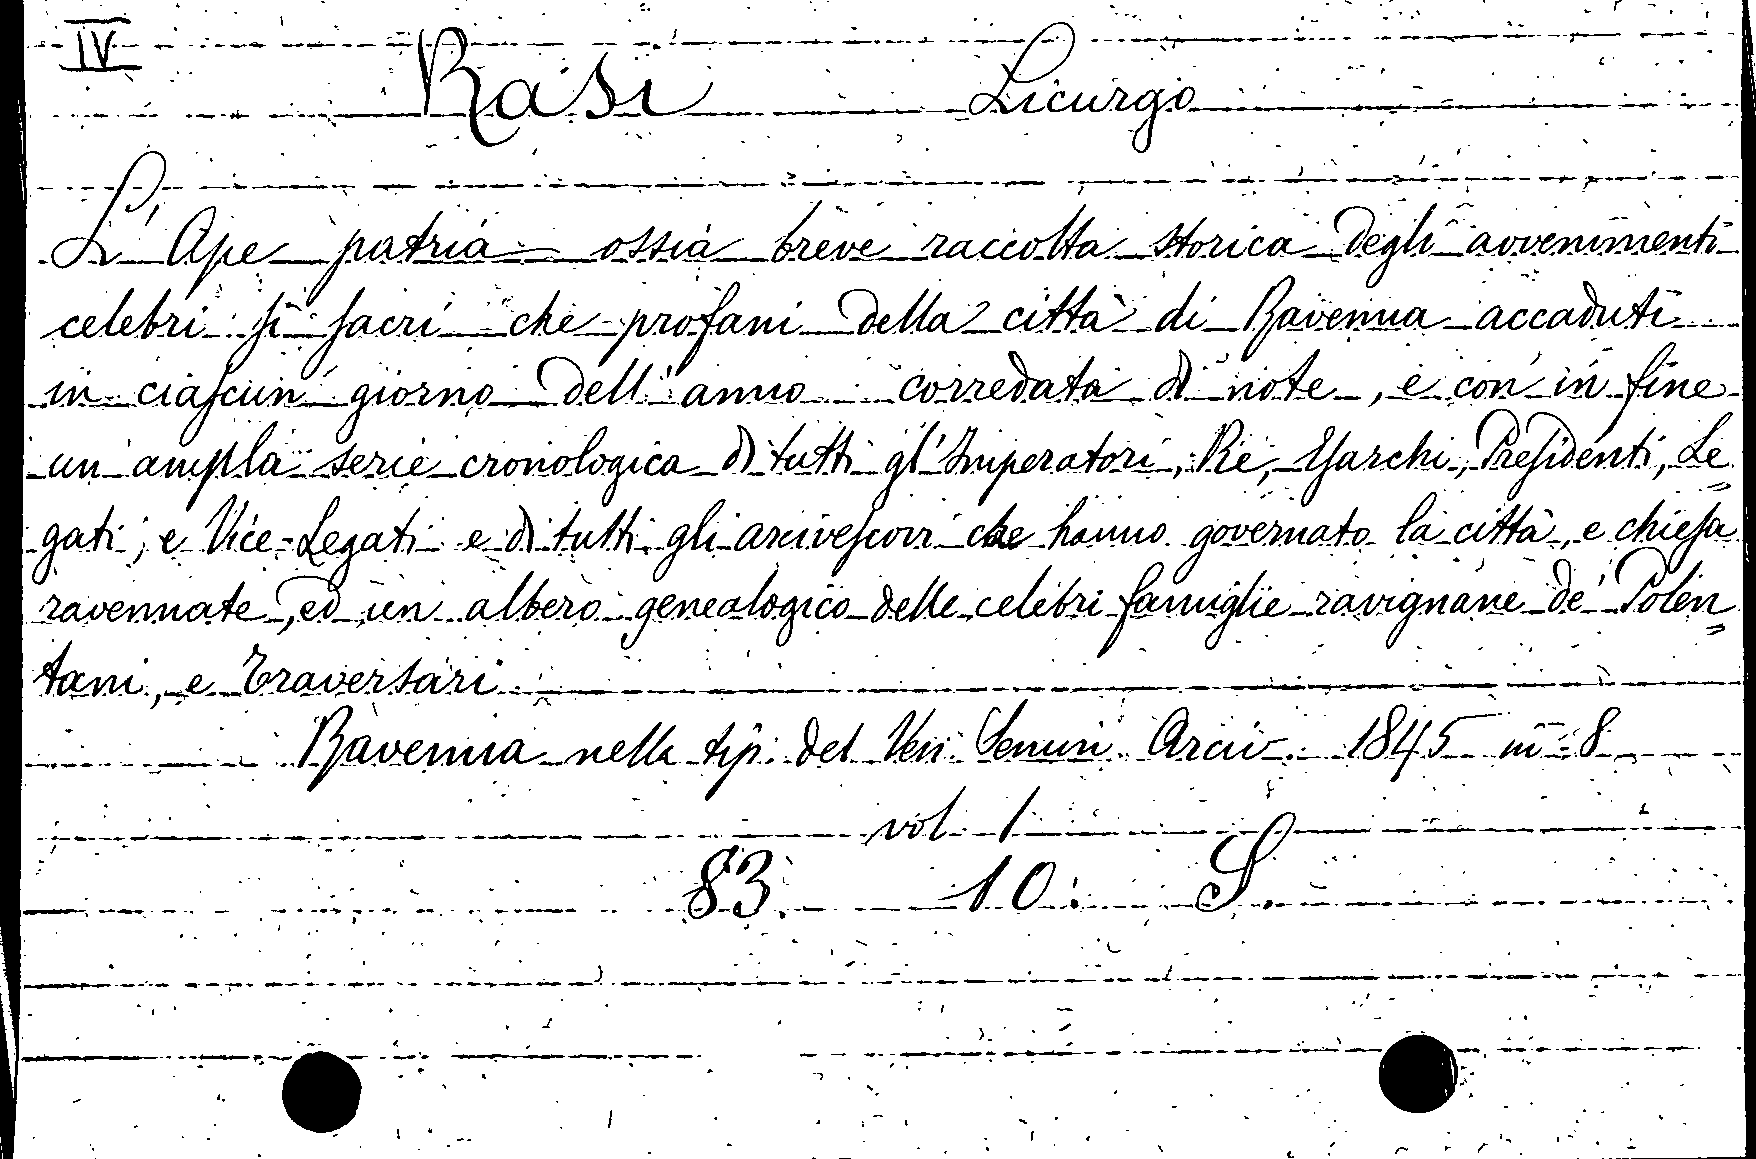 IV
Rasi Licurgo
L'Ape patria ossia breve raccolta storica degli avvenimenti
celebri sì sacri che profani della città di Ravenna accaduti
in ciascun giorno dell'anno corredata di note, e con in fine
un ampla serie cronologica di tutti gl'Imperatori, Re, Esarchi, Presidenti, Le=
gati, e Vice-Legati e di tutti gli arcivescovi che hanno governato la città, e chiesa
ravennate, ed un albero genealogico delle celebri famiglie ravignane de' Polen=
tani, e Traversari
Ravenna nella tip. del Ven. Semin. Arciv. 1845 in 8
vol. 1
83. 10. S.